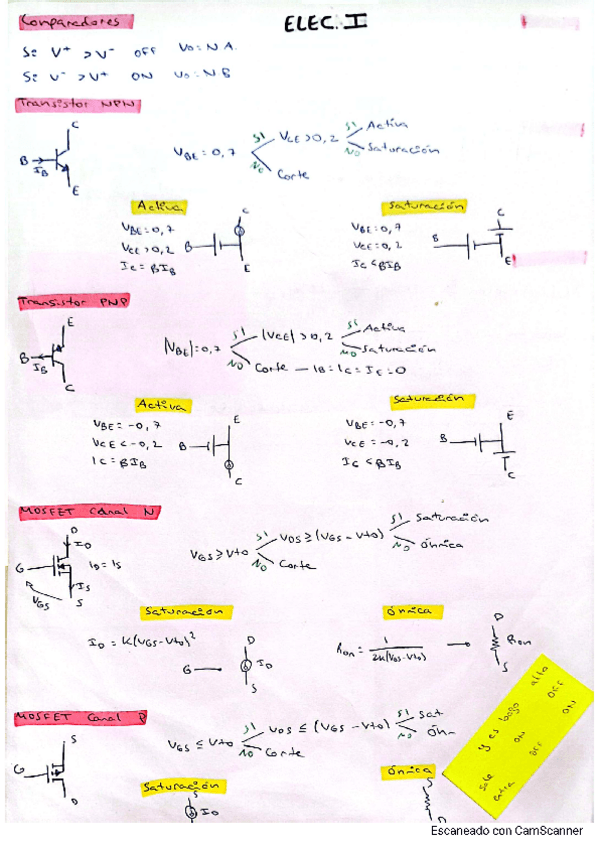 Comparadores
ELEC. I
Si V+ > V- OFF Vo: NA.
Si V- > V+ ON Vo: NB
Transistor NPN
C
B
IB
E
VBE = 0,7
SI
VCE > 0,2
SI
Activa
NO
Saturación
NO
Corte
Activa
VBE = 0,7
VCE > 0,2
IC = βIB
B
C
E
Saturación
VBE = 0,7
VCE = 0,2
IC < βIB
B
C
E
Transistor PNP
E
B
IB
C
|VBE| = 0,7
SI
|VCE| > 0,2
SI
Activa
NO
Saturación
NO
Corte — IB = IC = IE = 0
Activa
VBE = -0,7
VCE < -0,2
IC = βIB
B
E
C
Saturación
VBE = -0,7
VCE = -0,2
IC < βIB
B
E
C
MOSFET Canal N
D
ID
G
ID = IS
IS
VGS
S
VGS ≥ Vto
SI
VDS ≥ (VGS - Vto)
SI
Saturación
NO
Óhnica
NO
Corte
Saturación
ID = K(VGS - Vto)²
G
D
ID
S
Óhnica
Ron = 1 / 2K(VGS - Vto)
D
Ron
S
MOSFET Canal P
S
G
D
VGS ≤ Vto
SI
VDS ≤ (VGS - Vto)
SI
Sat
NO
Óhn
NO
Corte
Saturación
S
ID
Óhnica
S
D
y es bajo alto
sale ON OFF
entra OFF ON
Escaneado con CamScanner